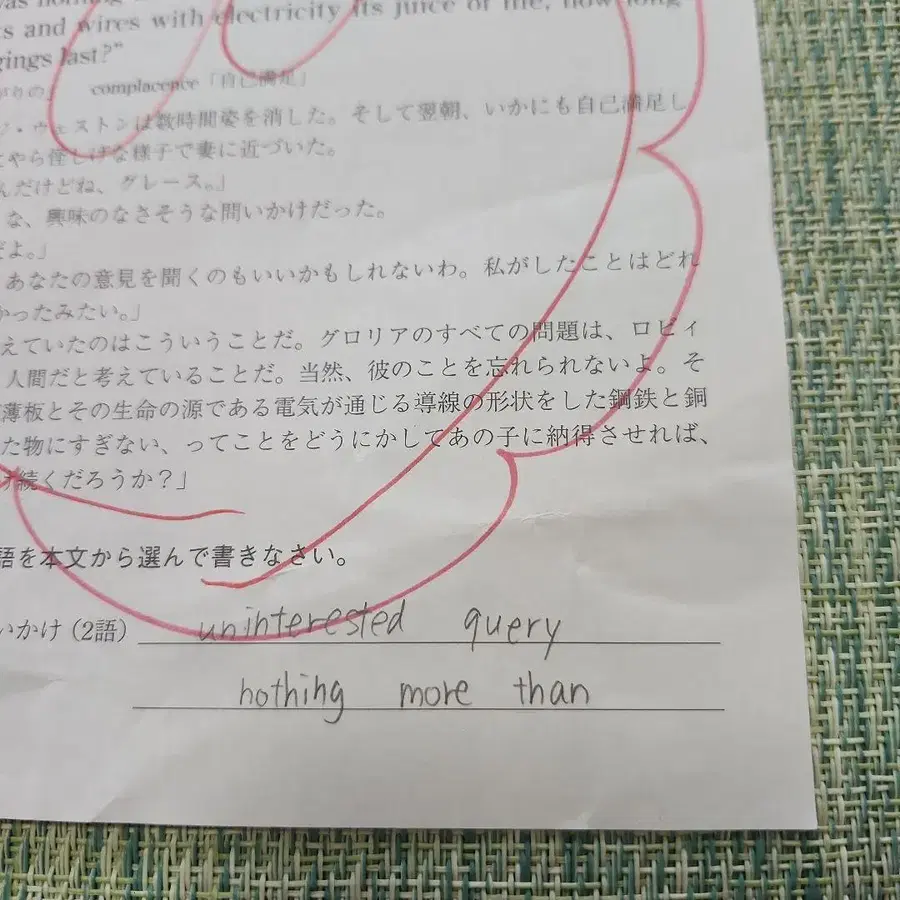 was nothing
ts and wires with electricity its juice of life, how long
gings last?"
がりの」 complacence「自己満足」
ジ・ウェストンは数時間姿を消した。そして翌朝、いかにも自己満足し
とやら怪しげな様子で妻に近づいた。
んだけどね、グレース。」
な、興味のなさそうな問いかけだった。
だよ。」
あなたの意見を聞くのもいいかもしれないわ。私がしたことはどれ
かったみたい。」
えていたのはこういうことだ。グロリアのすべての問題は、ロビィ
人間だと考えていることだ。当然、彼のことを忘れられないよ。そ
薄板とその生命の源である電気が通じる導線の形状をした鋼鉄と銅
た物にすぎない、ってことをどうにかしてあの子に納得させれば、
け続くだろうか？」
語を本文から選んで書きなさい。
いかけ (2語) uninterested query
nothing more than